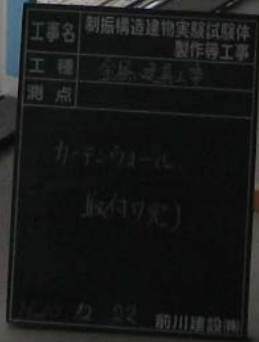 工事名 制振構造建物実験試験体
製作等工事
工種 金属建具工事
測点
カーテンウォール
取付け完了
12 22 前川建設㈱